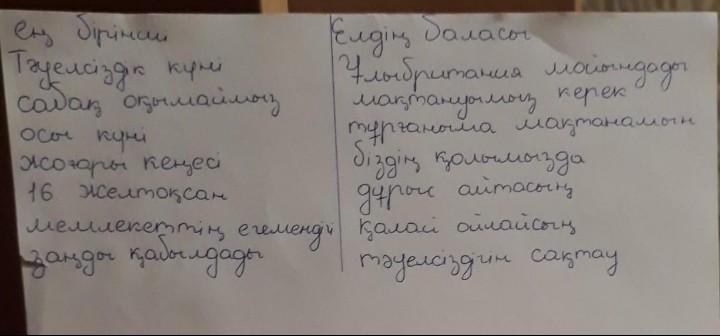 ең бірінші
Тәуелсіздік күні
сабақ оқымаймыз
осы күні
жоғары кеңесі
16 желтоқсан
мемлекеттің егеменді
заңды қабылдады
Елдің баласы
Ұлыбритания мойындады
мақтануымыз керек
тұрғаныма мақтанамын
біздің қолымызда
дұрыс айтасың
қалай ойлайсың
тәуелсіздігін сақтау